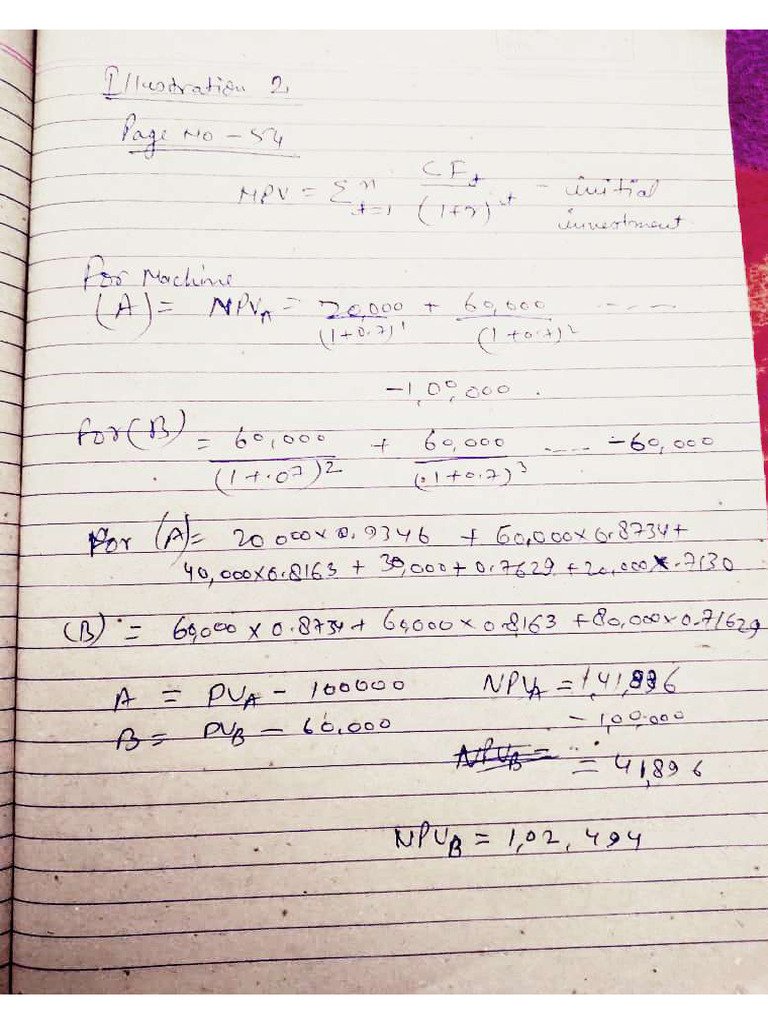 Illustration 2
Page No - 54
NPV = Σ^n_{t=1} CF_t / (1+r)^t - initial investment
For Machine
(A) = NPV_A = 20,000 / (1+0.7)^1 + 60,000 / (1+0.7)^2 ----
-1,00,000.
For (B) = 60,000 / (1+.07)^2 + 60,000 / (.1+0.7)^3 ---- -60,000
For (A) = 20000×0.9346 + 60,000×0.8734+
40,000×0.8163 + 30,000+0.7629 +20,000×.7130
(B) = 60,000 × 0.8734+ 60,000 × 0.8163 +80,000×0.71629
A = PV_A - 100000 NPV_A = 1,41,896
B = PV_B - 60,000 - 1,00,000
NPV_B = = 41,896
NPV_B = 1,02,494